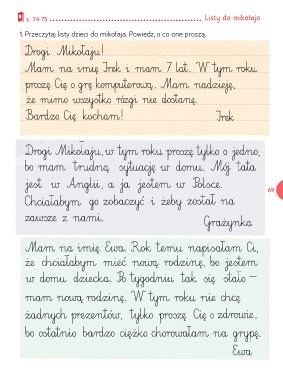 s. 74-75 Listy do mikołaja
1. Przeczytaj listy dzieci do mikołaja. Powiedz, o co one proszą.
Drogi Mikołaju!
Mam na imię Irek i mam 7 lat. W tym roku
proszę Cię o grę komputerową. Mam nadzieję,
że mimo wszystko rózgi nie dostanę.
Bardzo Cię kocham!
Irek
Drogi Mikołaju, w tym roku proszę tylko o jedno,
bo mam trudną sytuację w domu. Mój tata
jest w Anglii, a ja jestem w Polsce.
Chciałabym go zobaczyć i żeby został na
zawsze z nami.
Grażynka
69
Mam na imię Ewa. Rok temu napisałam Ci,
że chciałabym mieć nową rodzinę, bo jestem
w domu dziecka. Po tygodniu tak się stało –
mam nową rodzinę. W tym roku nie chcę
żadnych prezentów, tylko proszę Cię o zdrowie,
bo ostatnio bardzo ciężko chorowałam na grypę.
Ewa